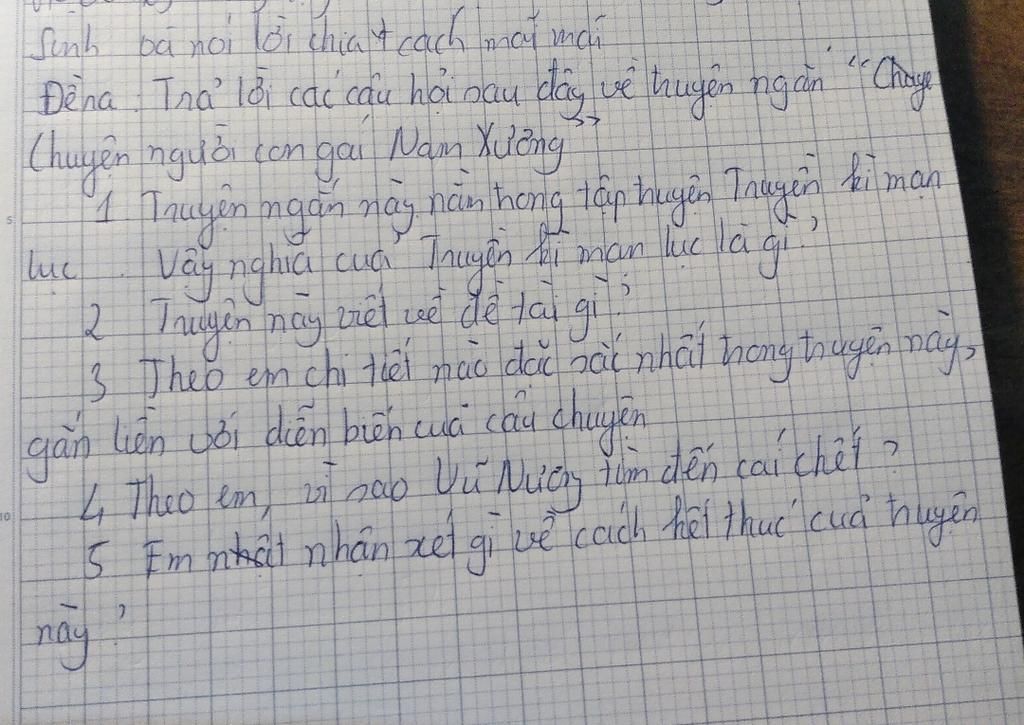 Sinh bà nói lời chia cách mãi mãi
Đề na: Trả lời các câu hỏi sau đây về truyện ngắn "Chuye
Chuyện người con gái Nam Xương"
1 Truyện ngắn này nằm trong tập truyện Truyền kì mạn
lục. Vậy nghĩa của Truyền kì mạn lục là gì?
2 Truyện này viết về đề tài gì?
3 Theo em chi tiết nào đặc sắc nhất trong truyện này,
gắn liền với diễn biến của câu chuyện
4 Theo em, vì sao Vũ Nương tìm đến cái chết?
5 Em nhât nhận xét gì về cách kết thúc của truyện
này?